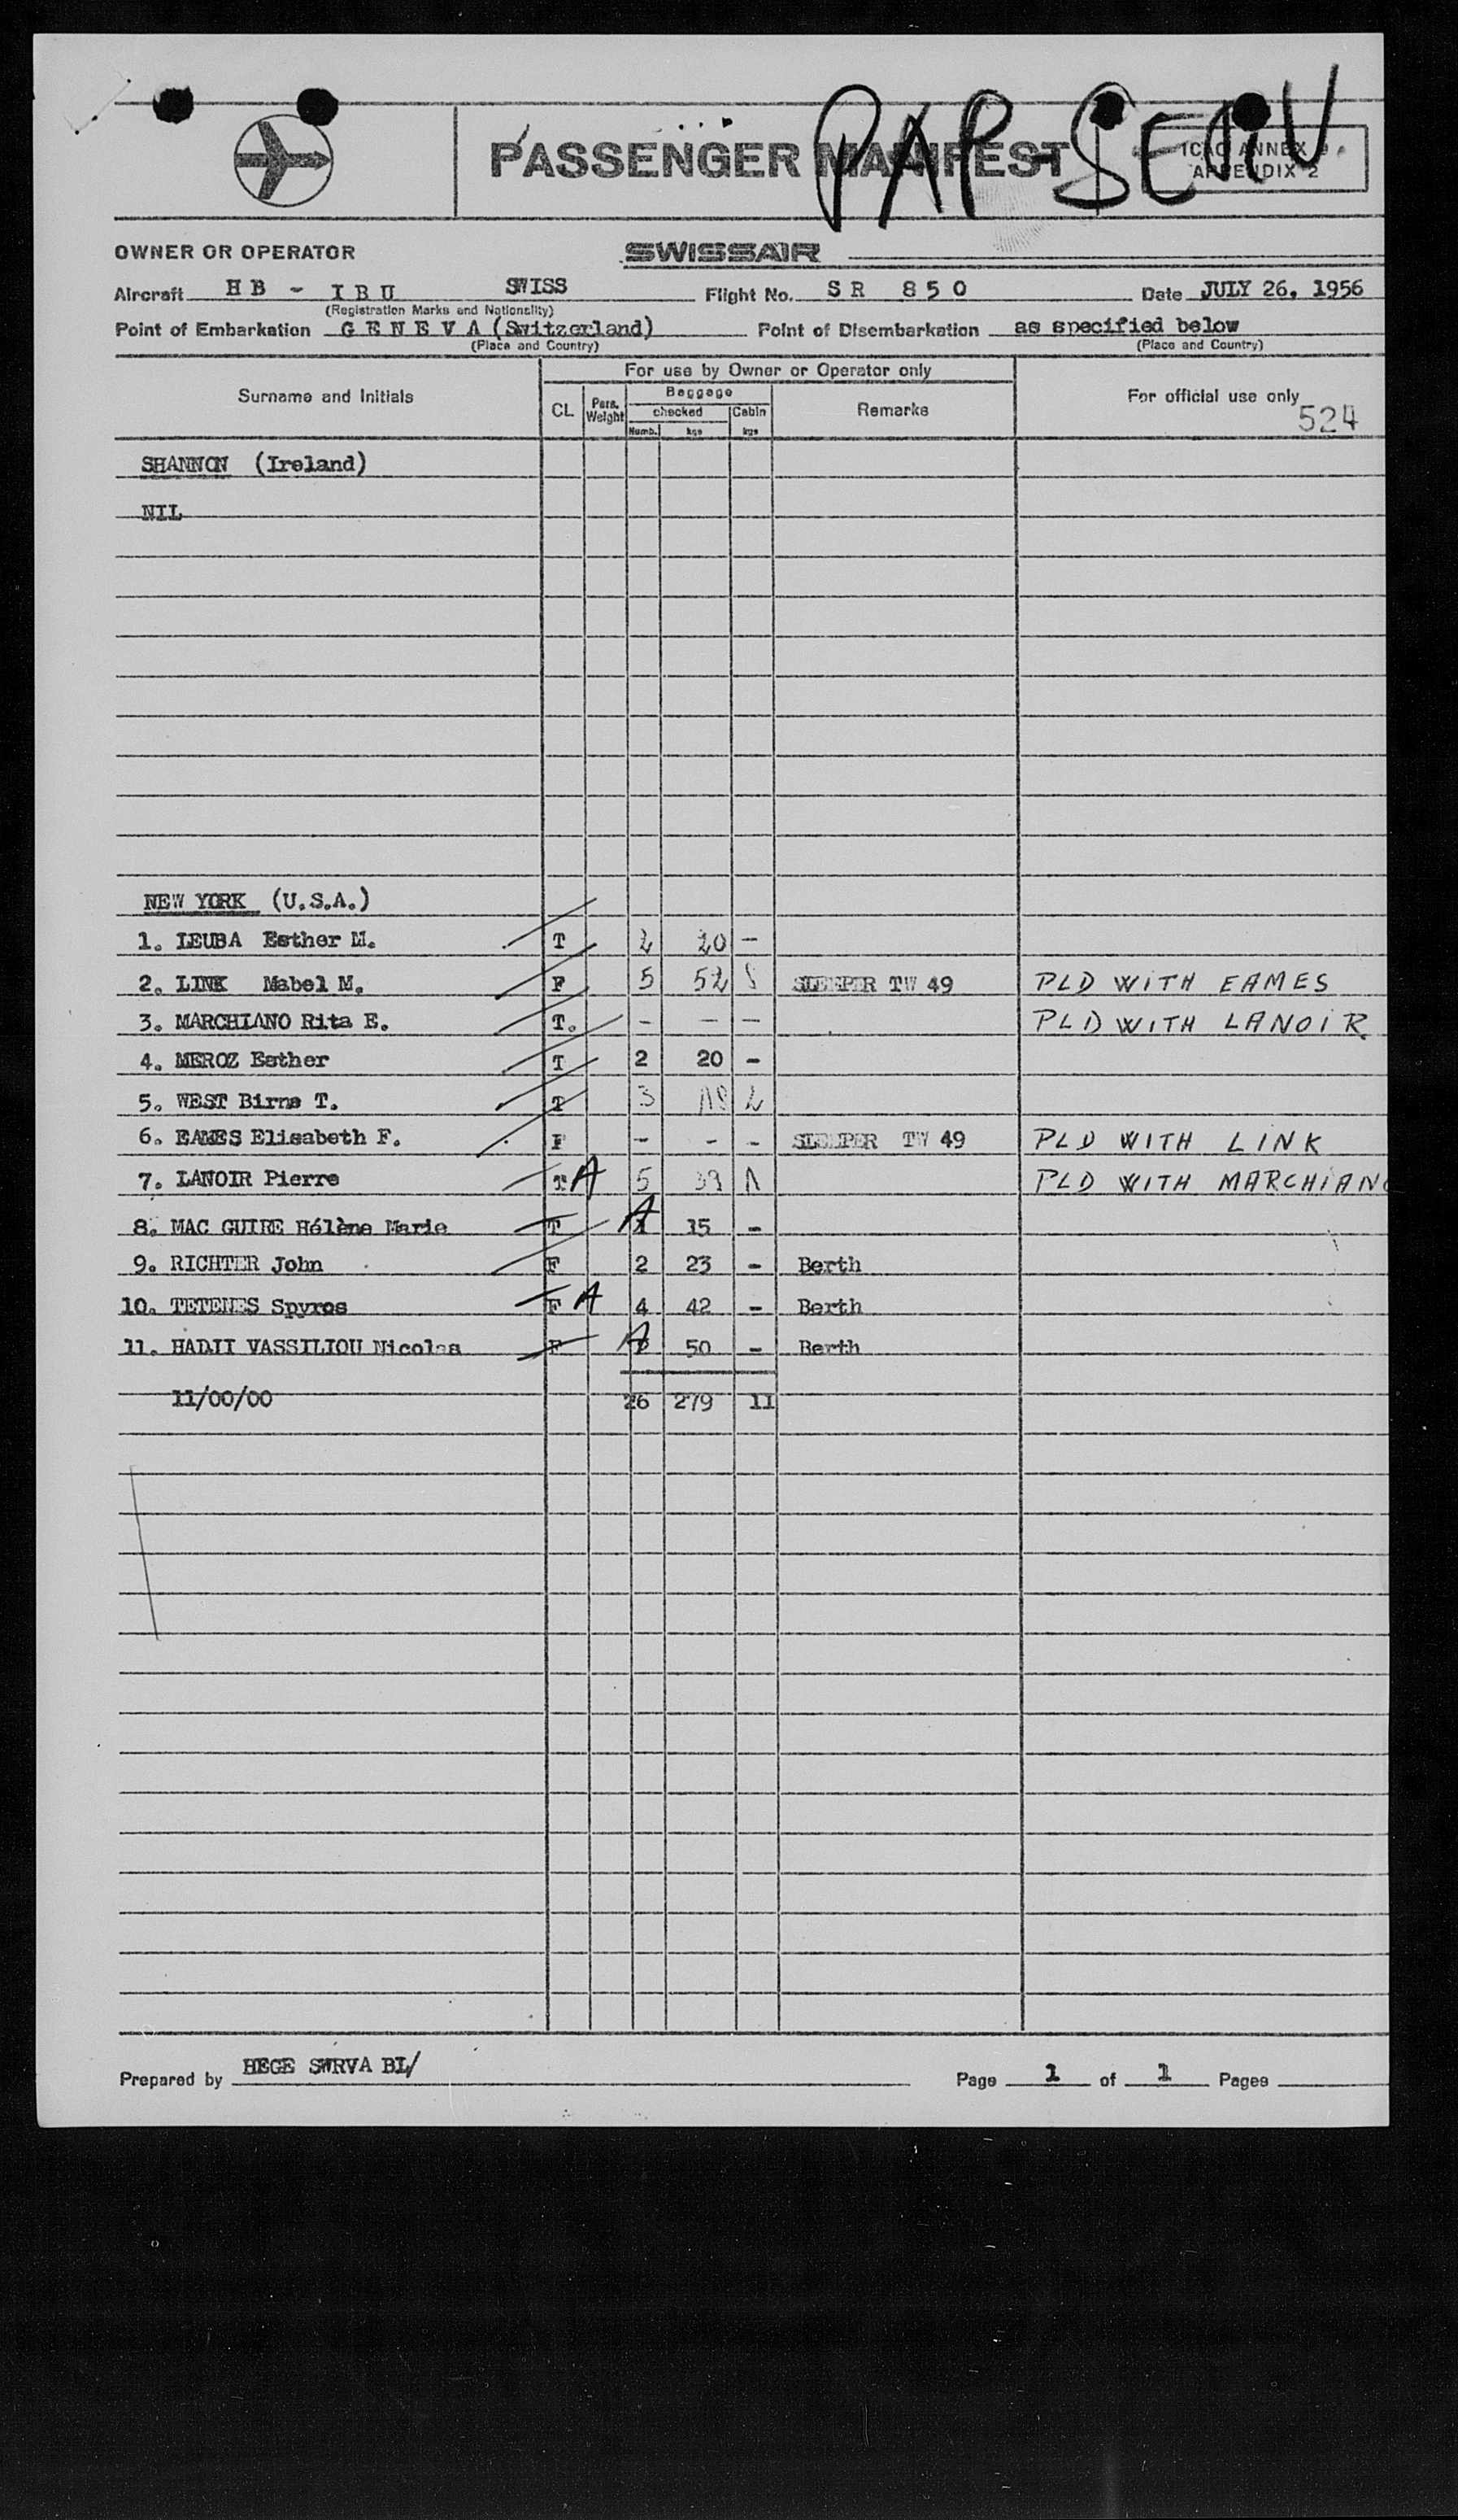 PAP-SENV
PASSENGER MANIFEST
ICAO ANNEX 9
APPENDIX 2
OWNER OR OPERATOR SWISSAIR
Aircraft HB - IBU SWISS Flight No. SR 850 Date JULY 26, 1956
(Registration Marks and Nationality)
Point of Embarkation GENEVA (Switzerland) Point of Disembarkation as specified below
(Place and Country) (Place and Country)
For use by Owner or Operator only
Surname and Initials CL Pass. Weight Baggage Remarks For official use only
checked Cabin
Numb. kgs kgs
524
SHANNON (Ireland)
NIL
NEW YORK (U.S.A.)
1. LEUBA Esther M. T 2 20 -
2. LINK Mabel M. F 5 52 8 SLEEPER TW 49 PLD WITH EAMES
3. MARCHIANO Rita E. T. - - - PLD WITH LANOIR
4. MEROZ Esther T 2 20 -
5. WEST Birne T. T 3 18 2
6. EAMES Elisabeth F. F - - - SLEEPER TW 49 PLD WITH LINK
7. LANOIR Pierre T A 5 39 1 PLD WITH MARCHIANO
8. MAC GUIRE Hélène Marie T A 1 15 -
9. RICHTER John F 2 23 - Berth
10. TETENES Spyros F A 4 42 - Berth
11. HADJI VASSILIOU Nicolas F A 2 50 - Berth
11/00/00 26 279 11
Prepared by HEGE SWRVA BL/ Page 1 of 1 Pages